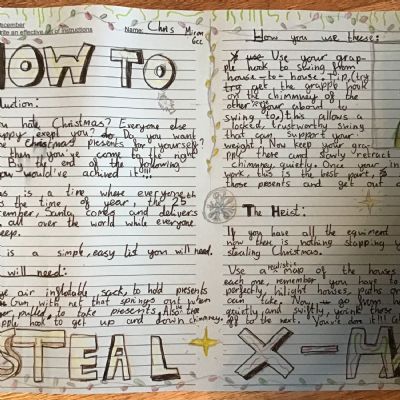 December
write an effective set of instructions
Name: Chris
6cc
HOW TO
duction:
you hate Christmas? Everyone else
happy exept you? do Do you want
the christmas presents for yourself?
then you've come to the right
By the end of following
you would've achived it!!!
as is a time where everyone
is the time of year, the 25th
cember, Santa comes and delivers
all over the world while everyone
eep.
is a simple, easy list you will need.
will need:
ge air inflatable sack, to hold presents
gun with net that springs out when
er pulled, to take presents. Also the
apple hook to get up and down chimneys.
STEAL
How you use these:
use Use your grap-
ple hook to swing from
house-to-house: Tip, (try
try to get the grapple hook
on the chimmney of the
other your about to
swing to, this allows a
locked, trustworthy swing
that can support your
weight. Now keep your gra-
pple there and slowly retract
chimney quietly. Once your in
work, this is the best part,
those presents and get out
The Heist:
If you have all the equiment
now there is nothing stopping y
stealing Christmas.
realistic
Use a map of the houses
each one, remember you have to
perfectly, hilight houses, paths or
can take. Now go from h
quietly and swiftly, yoink those
off to the next. You've dom it!!
X-M